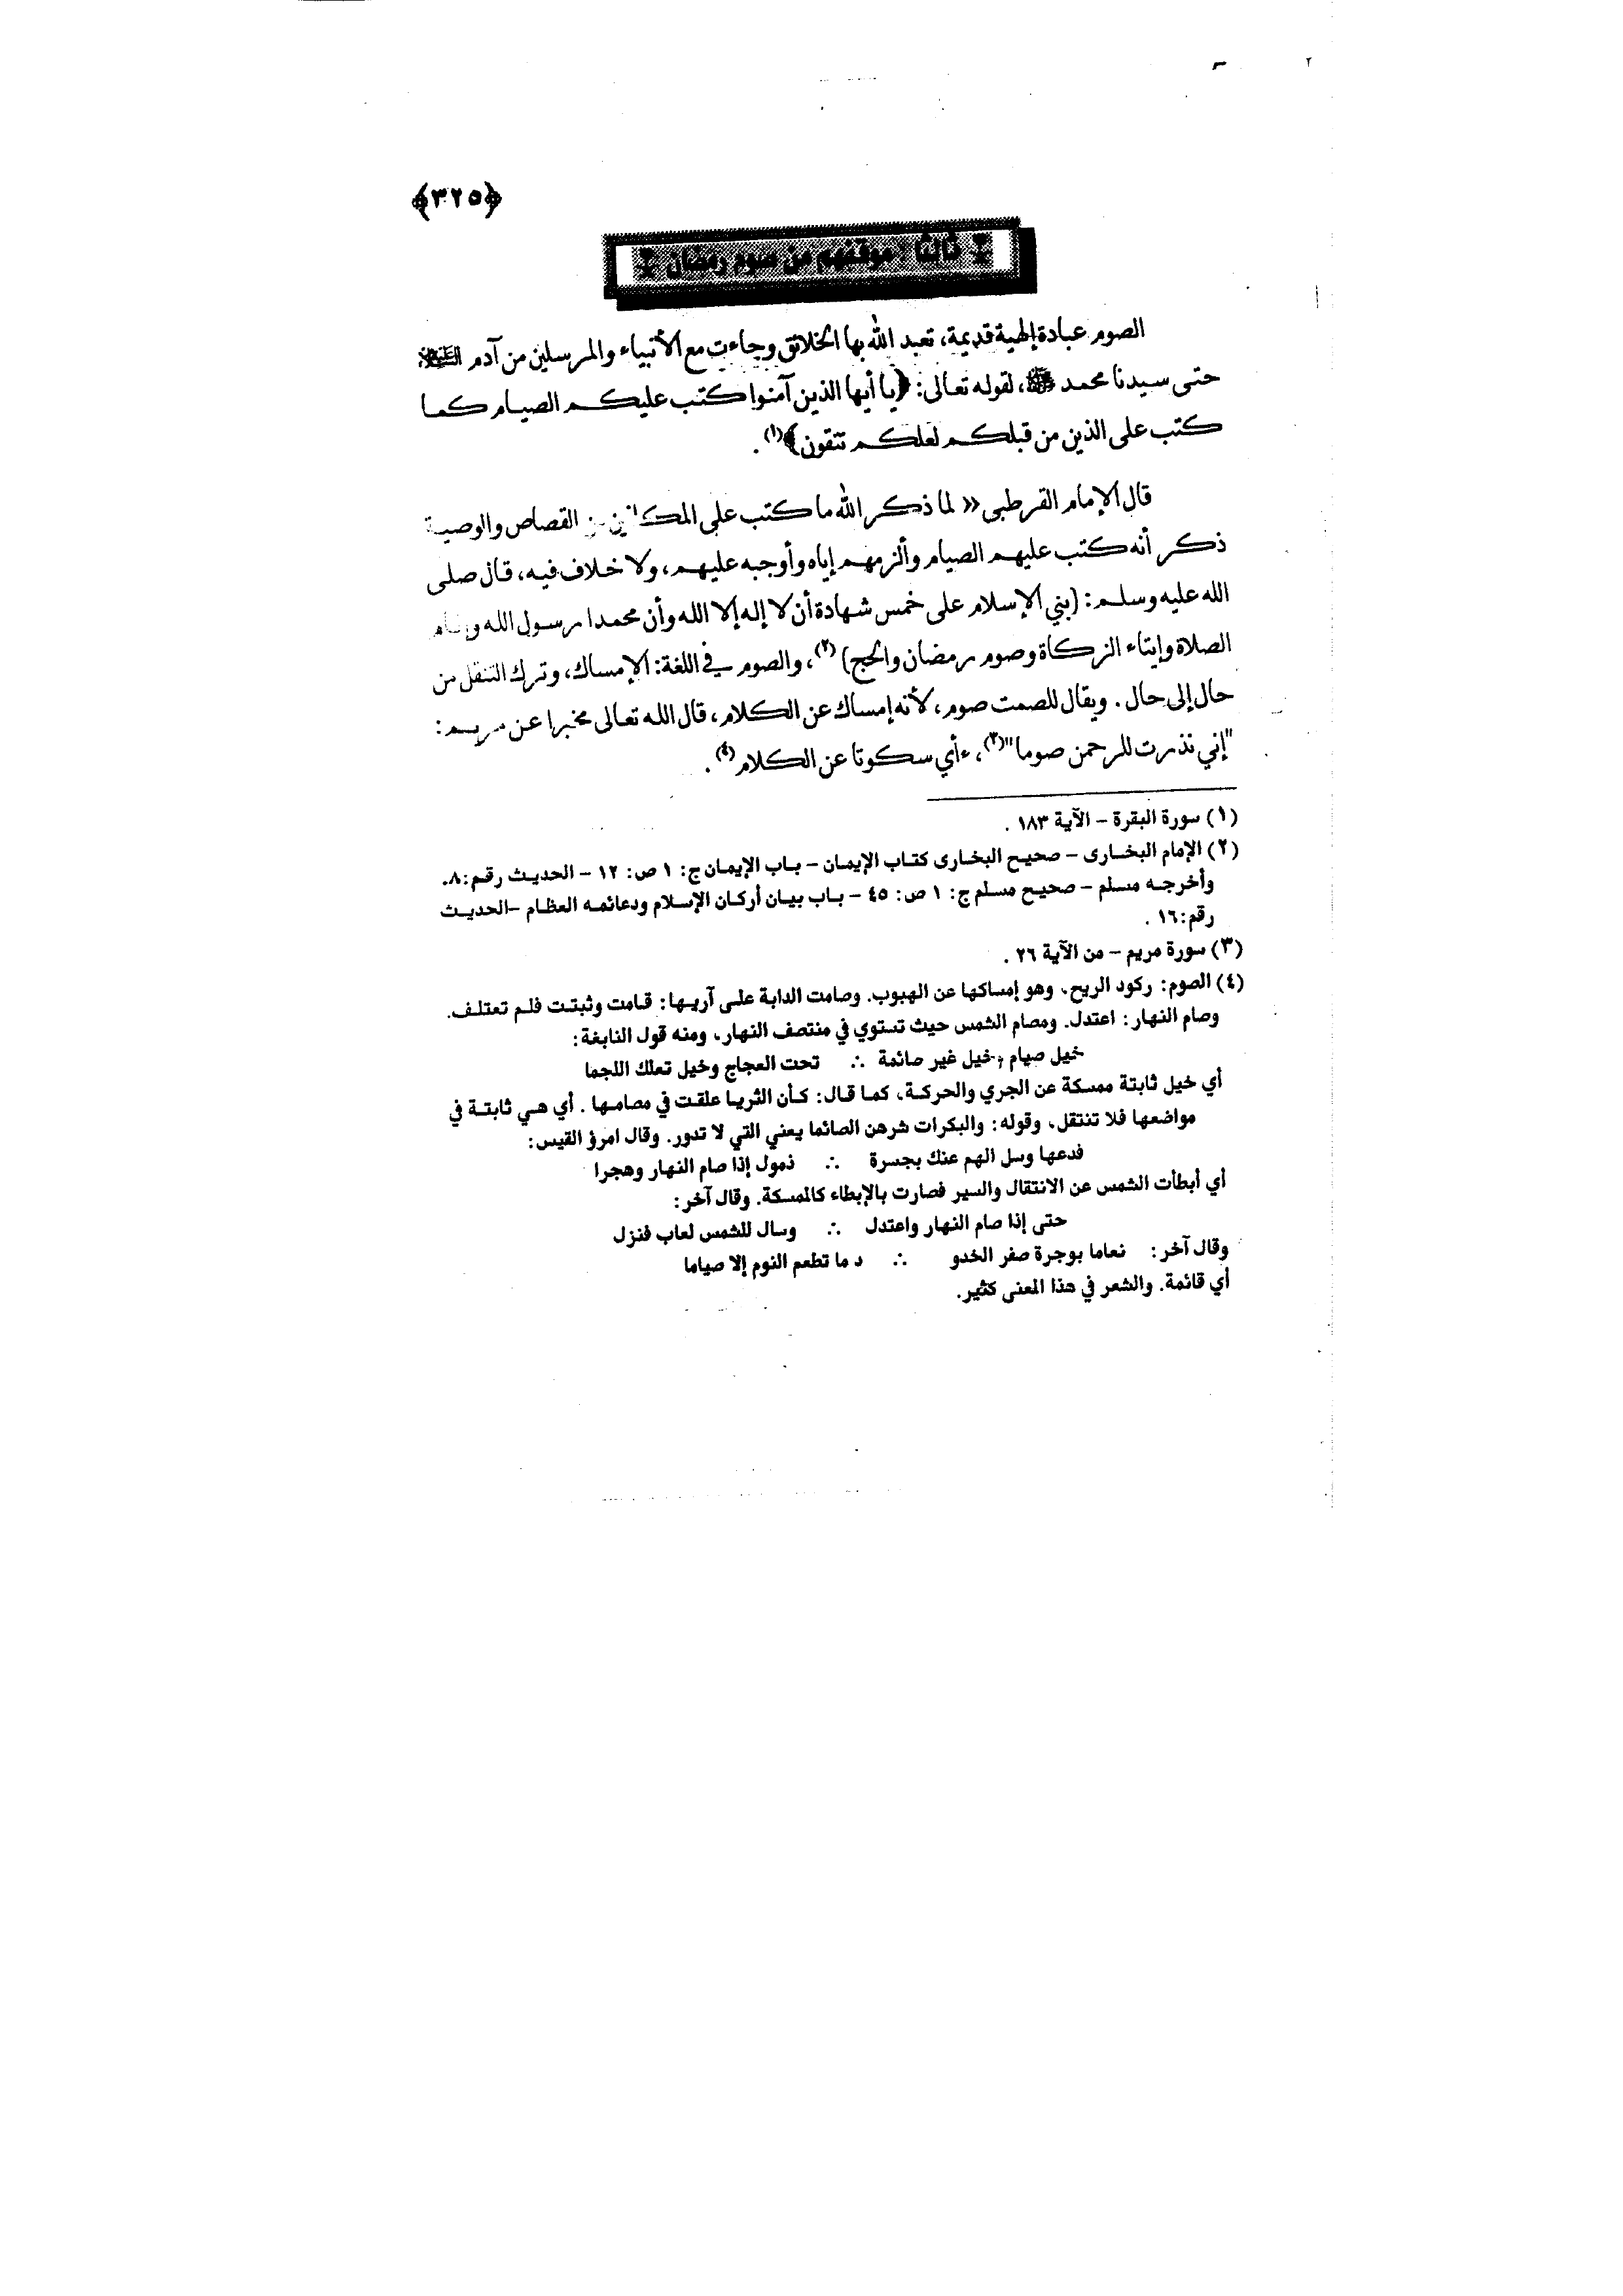 ﴿٣٢٥﴾
ثالثا : موقفهم من صوم رمضان
الصوم عبادة إلهية قديمة، تعبد الله بها الخلائق وجاءت مع الأنبياء والمرسلين من آدم عليه السلام
حتى سيدنا محمد ﷺ، لقوله تعالى: ﴿يا أيها الذين آمنوا كتب عليكم الصيام كما
كتب على الذين من قبلكم لعلكم تتقون﴾(١).
قال الإمام القرطبى « لما ذكر الله ما كتب على المكلفين من القصاص والوصية
ذكر أنه كتب عليهم الصيام وألزمهم إياه وأوجبه عليهم، ولا خلاف فيه، قال صلى
الله عليه وسلم: (بني الإسلام على خمس شهادة أن لا إله إلا الله وأن محمدا رسول الله وإقام
الصلاة وإيتاء الزكاة وصوم رمضان والحج)(٢)، والصوم في اللغة: الإمساك، وترك التنقل من
حال إلى حال. ويقال للصمت صوم، لأنه إمساك عن الكلام، قال الله تعالى مخبرا عن مريم:
"إني نذرت للرحمن صوما"(٣)، أي سكوتا عن الكلام(٤).
(١) سورة البقرة – الآية ١٨٣ .
(٢) الإمام البخارى – صحيح البخارى كتاب الإيمان – باب الإيمان ج: ١ ص: ١٢ – الحديث رقم:٨.
وأخرجه مسلم – صحيح مسلم ج: ١ ص: ٤٥ – باب بيان أركان الإسلام ودعائمه العظام –الحديث
رقم:١٦ .
(٣) سورة مريم – من الآية ٢٦ .
(٤) الصوم: ركود الريح، وهو إمساكها عن الهبوب. وصامت الدابة على آريها: قامت وثبتت فلم تعتلف.
وصام النهار: اعتدل. ومصام الشمس حيث تستوي في منتصف النهار، ومنه قول النابغة:
خيل صيام وخيل غير صائمة ∴ تحت العجاج وخيل تعلك اللجما
أي خيل ثابتة ممسكة عن الجري والحركة، كما قال: كأن الثريا علقت في مصامها . أي هي ثابتة في
مواضعها فلا تنتقل، وقوله: والبكرات شرهن الصائما يعني التي لا تدور. وقال امرؤ القيس:
فدعها وسل الهم عنك بجسرة ∴ ذمول إذا صام النهار وهجرا
أي أبطأت الشمس عن الانتقال والسير فصارت بالإبطاء كالممسكة. وقال آخر:
حتى إذا صام النهار واعتدل ∴ وسال للشمس لعاب فنزل
وقال آخر: نعاما بوجرة صفر الخدو ∴ د ما تطعم النوم إلا صياما
أي قائمة. والشعر في هذا المعنى كثير.